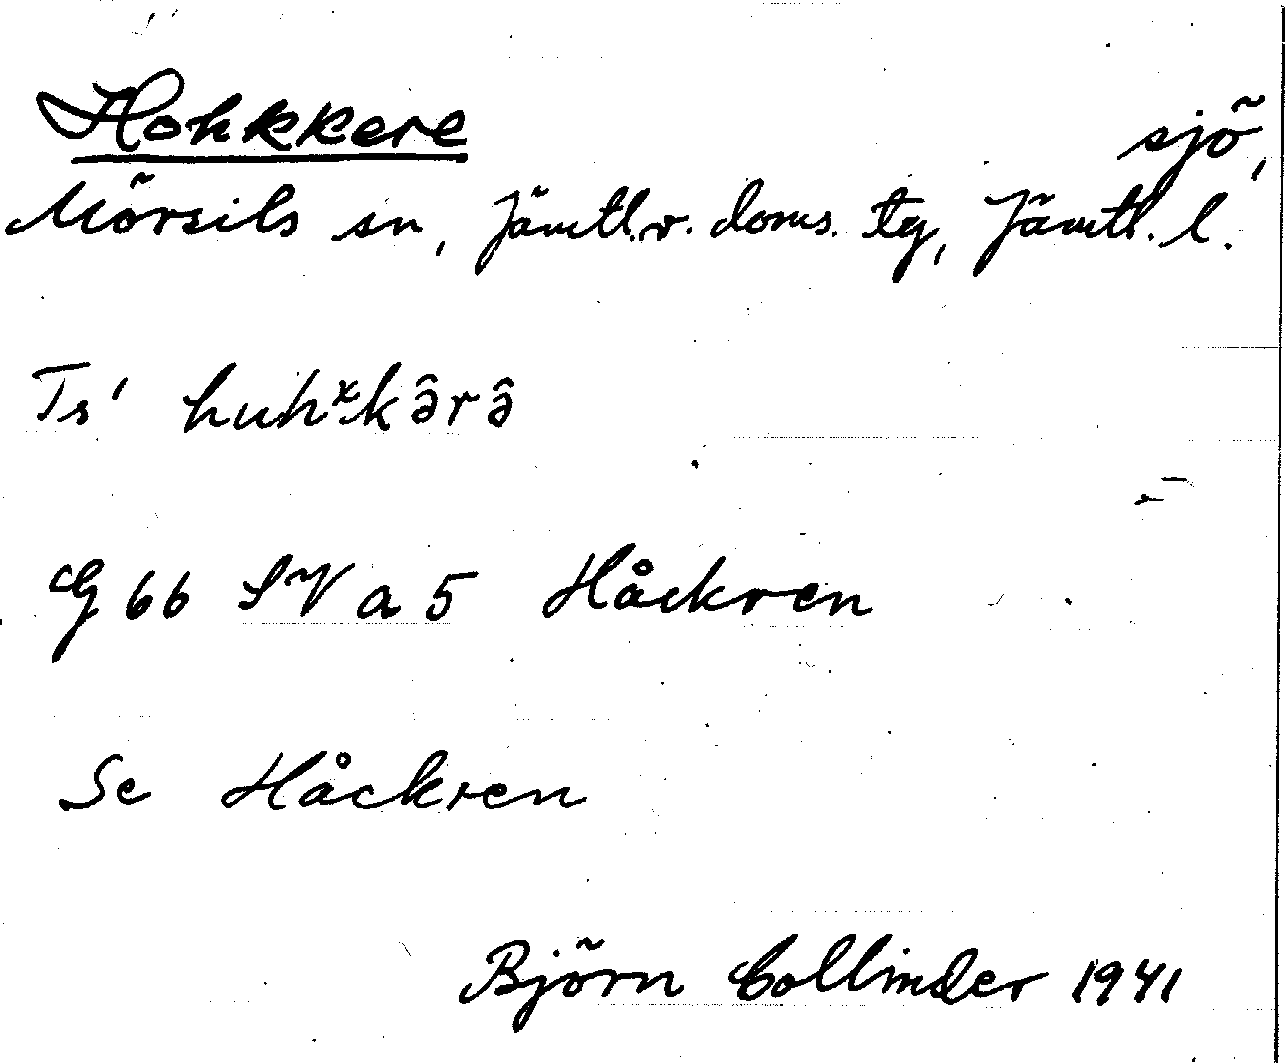 Hohkkere sjö,
Mörsils sn, Jämtl.v. doms. tg, Jämtl. l.
Ts' huhˣkə̂rə̂
G 66 SV a 5 Håckren
Se Håckren
Björn Collinder 1941